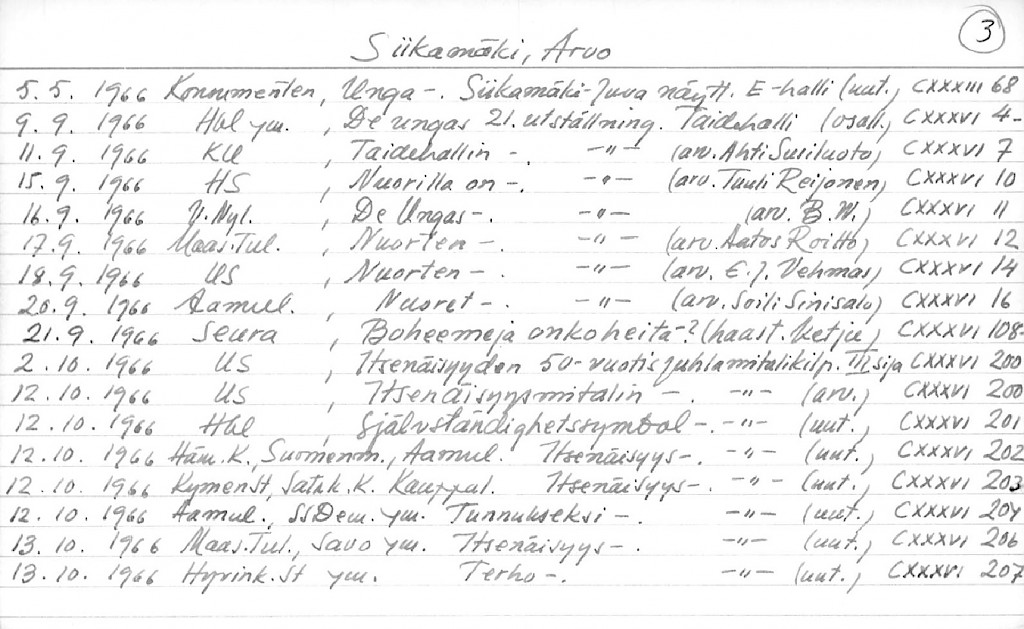 3
Siikamäki, Arvo
5.5. 1966 Konnumenten, Unga -. Siikamäki-Juva näytt. E-halli (uut., CXXXIII 68
9.9. 1966 Hbl ym. , De ungas 21. utställning. Taidehalli (osall., CXXXVI 4-
11.9. 1966 KU , Taidehallin -. -"- (arv. Ahti Susiluoto, CXXXVI 7
15.9. 1966 HS , Nuorilla on -. -"- (arv. Tuuli Reijonen, CXXXVI 10
16.9. 1966 V. Nyl. , De Ungas -. -"- (arv. B.W.) CXXXVI 11
17.9. 1966 Maas.Tul. , Nuorten -. -"- (arv. Aatos Roitto, CXXXVI 12
18.9. 1966 US , Nuorten -. -"- (arv. E.J. Vehmas, CXXXVI 14
20.9. 1966 Aamul. Nuoret -. -"- (arv. Soili Sinisalo) CXXXVI 16
21.9. 1966 Seura , Boheemeja onko heitä -? (haast. ketju, CXXXVI 108-
2.10. 1966 US , Itsenäisyyden 50-vuotisjuhlamitalikilp. III sija CXXXVI 200
12.10. 1966 US , Itsenäisyysmitalin -. -"- (arv.) CXXXVI 200
12.10. 1966 Hbl , Självständighetssymbol -. -"- (uut., CXXXVI 201
12.10. 1966 Häm.K., Suomenm., Aamul. Itsenäisyys -. -"- (uut., CXXXVI 202
12.10. 1966 KymenSt, Satak.K. Kauppal. Itsenäisyys -. -"- (uut., CXXXVI 203
12.10. 1966 Aamul., SsDem. ym. Tunnukseksi -. -"- (uut., CXXXVI 204
13.10. 1966 Maas.Tul., Savo ym. Itsenäisyys -. -"- (uut., CXXXVI 206
13.10. 1966 Hyvink.St ym. Terho -. -"- (uut., CXXXVI 207